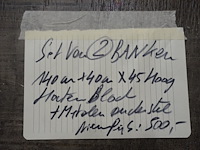 Set Van 2 BANken
140 cm x 40 cm x 45 Hoog
Houten Blad
+ Metalen onderstel
Nieuw Prijs: 500,-